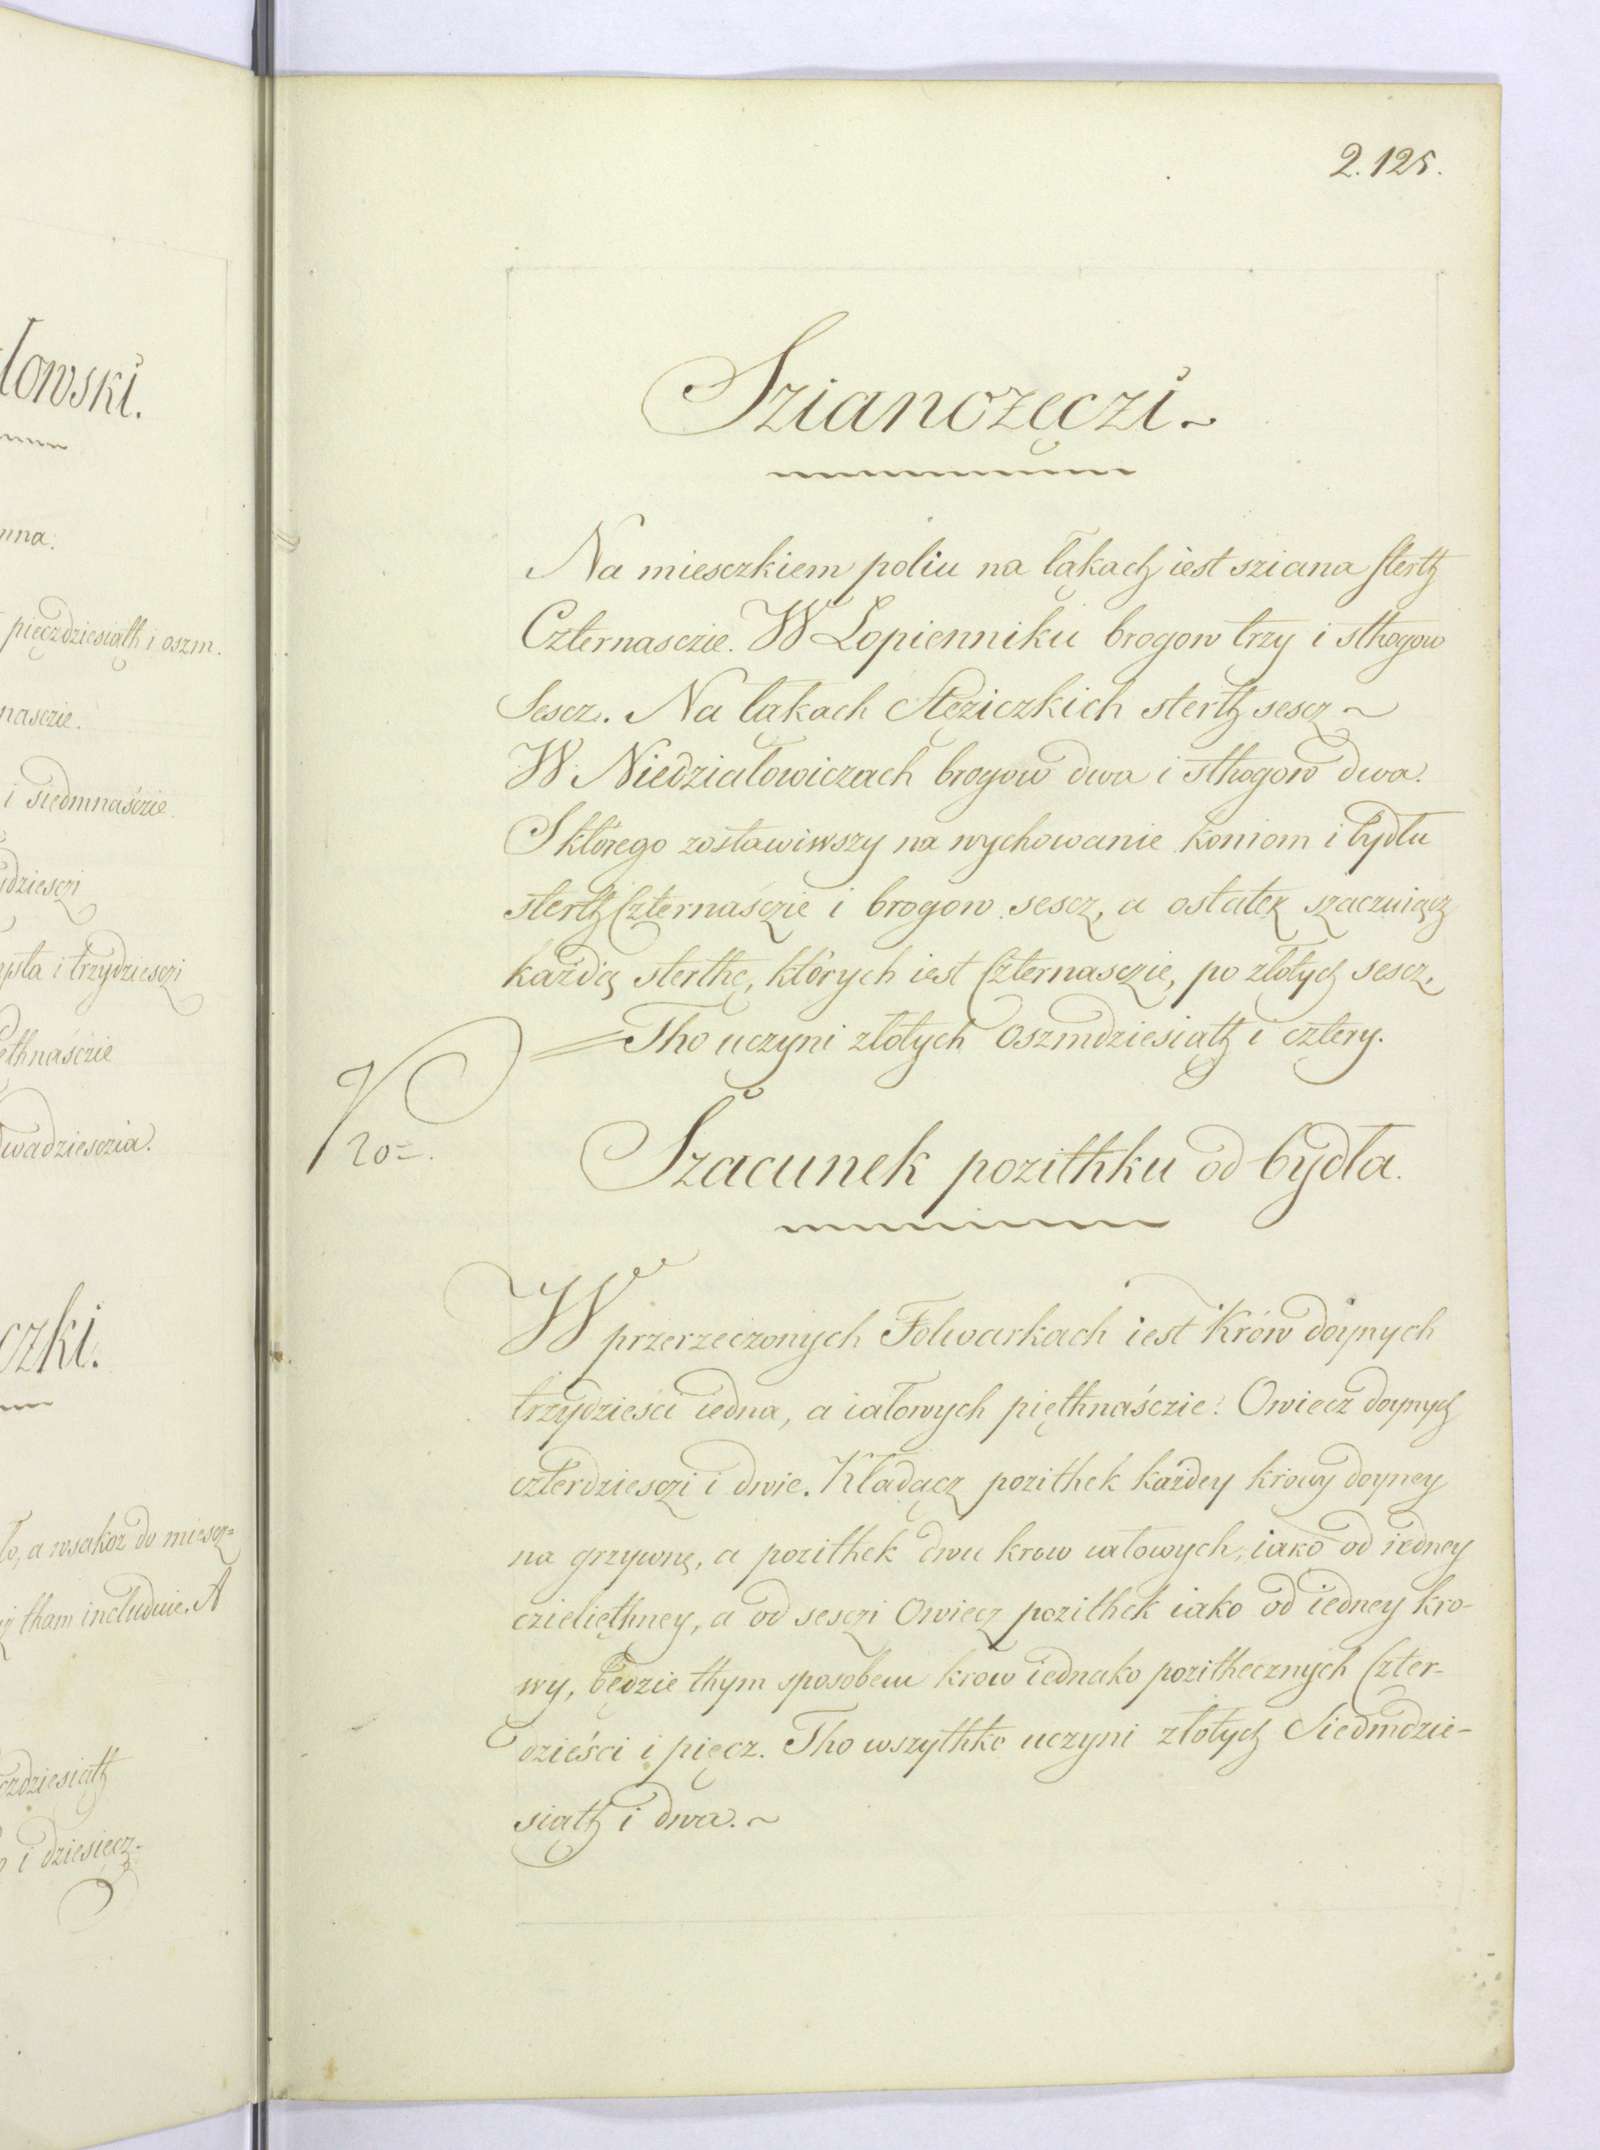 lowski.
nna.
pięczdziesiąth i oszm.
nasczie.
i siedmnaśczie.
dziesczi
i trzydziesczi
ethnaśczie
wadziesczia.
czki.
ło, a wsakoż do miescz=
tham includuie. A
czdziesiąth
i dziesięcz.
2. 125.
Szianożęczi.~
Na miesczkiem poliu na łąkach iest sziana sterth
Czternasczie. W Lopienniku brogow trzy i sthogow
Sescz. Na łąkach Stęziczkich sterth sescz ~
W Niedziałowiczach brogow dwa i sthogow dwa.
S którego zostawiwszy na wychowanie koniom i bydłu
sterth Czternaśczie i brogow sescz, a ostatek szaczuiącz
każdą sterthę, których iest Czternasczie, po złotych sescz,
=Tho uczyni złotych Oszmdziesiąth i cztery.
20=.
Szacunek pozithku od bydła.
W przerzeczonych Folwarkach iest Krów doynych
trzydzieści iedna, a iałowych pięthnaśczie. Owiecz doynych
czterdziesczi i dwie. Kładącz pozithek każdey krowy doyney
na grzywnę, a pozithek dwu krow iałowych, iako od iedney
czieliętkney, a od sesczi Owiecz pozithek iako od iedney kro-
wy, będzie thym sposobem krow iednako pozithecznych Czter-
dzieści i pięcz. Tho wszythko uczyni złotych Siedmdzie-
siąth i dwa.~